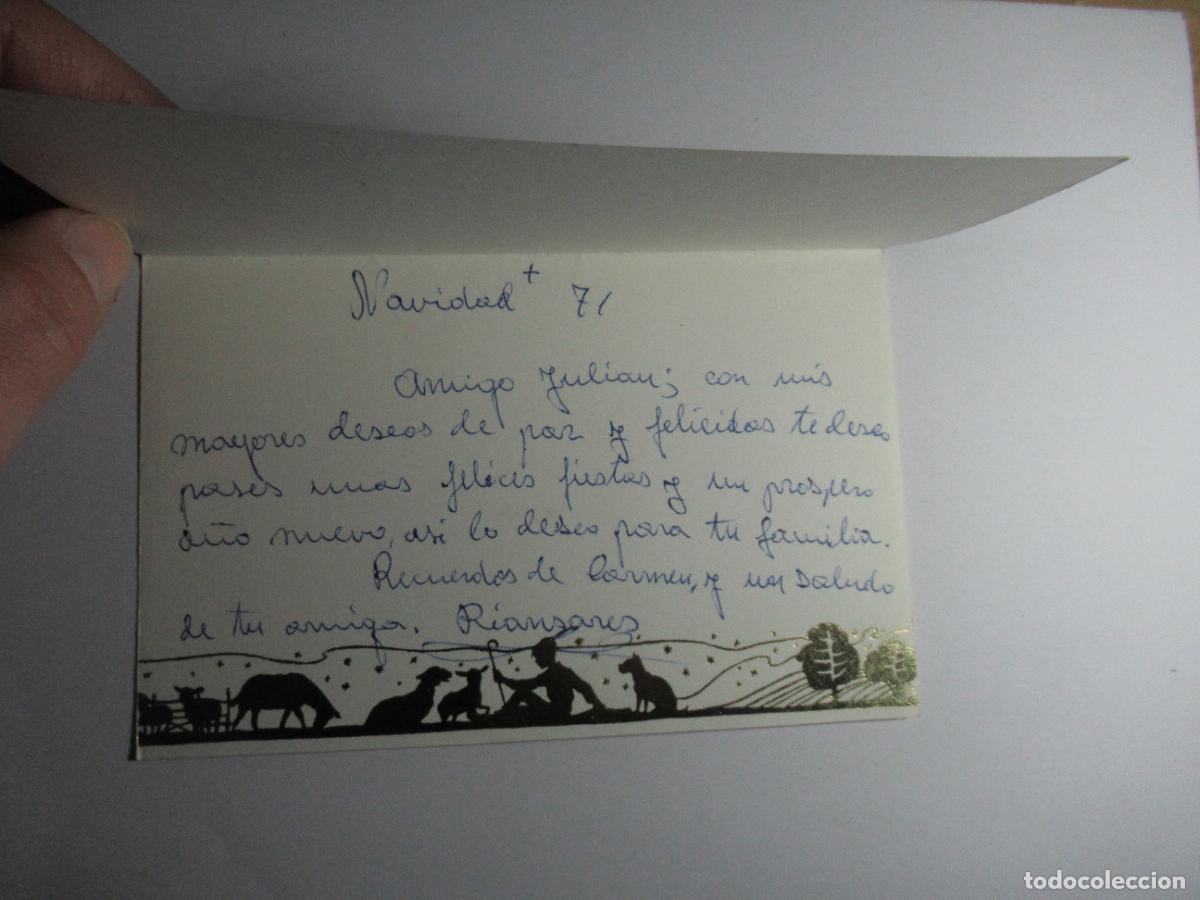 Navidad + 71
Amigo Julian; con mis
mayores deseos de paz y felicidas te deseo
pases unas felices fiestas y un prospero
año nuevo, asi lo deseo para tu familia.
Recuerdos de Carmen, y un saludo
de tu amiga. Riansares
todocoleccion